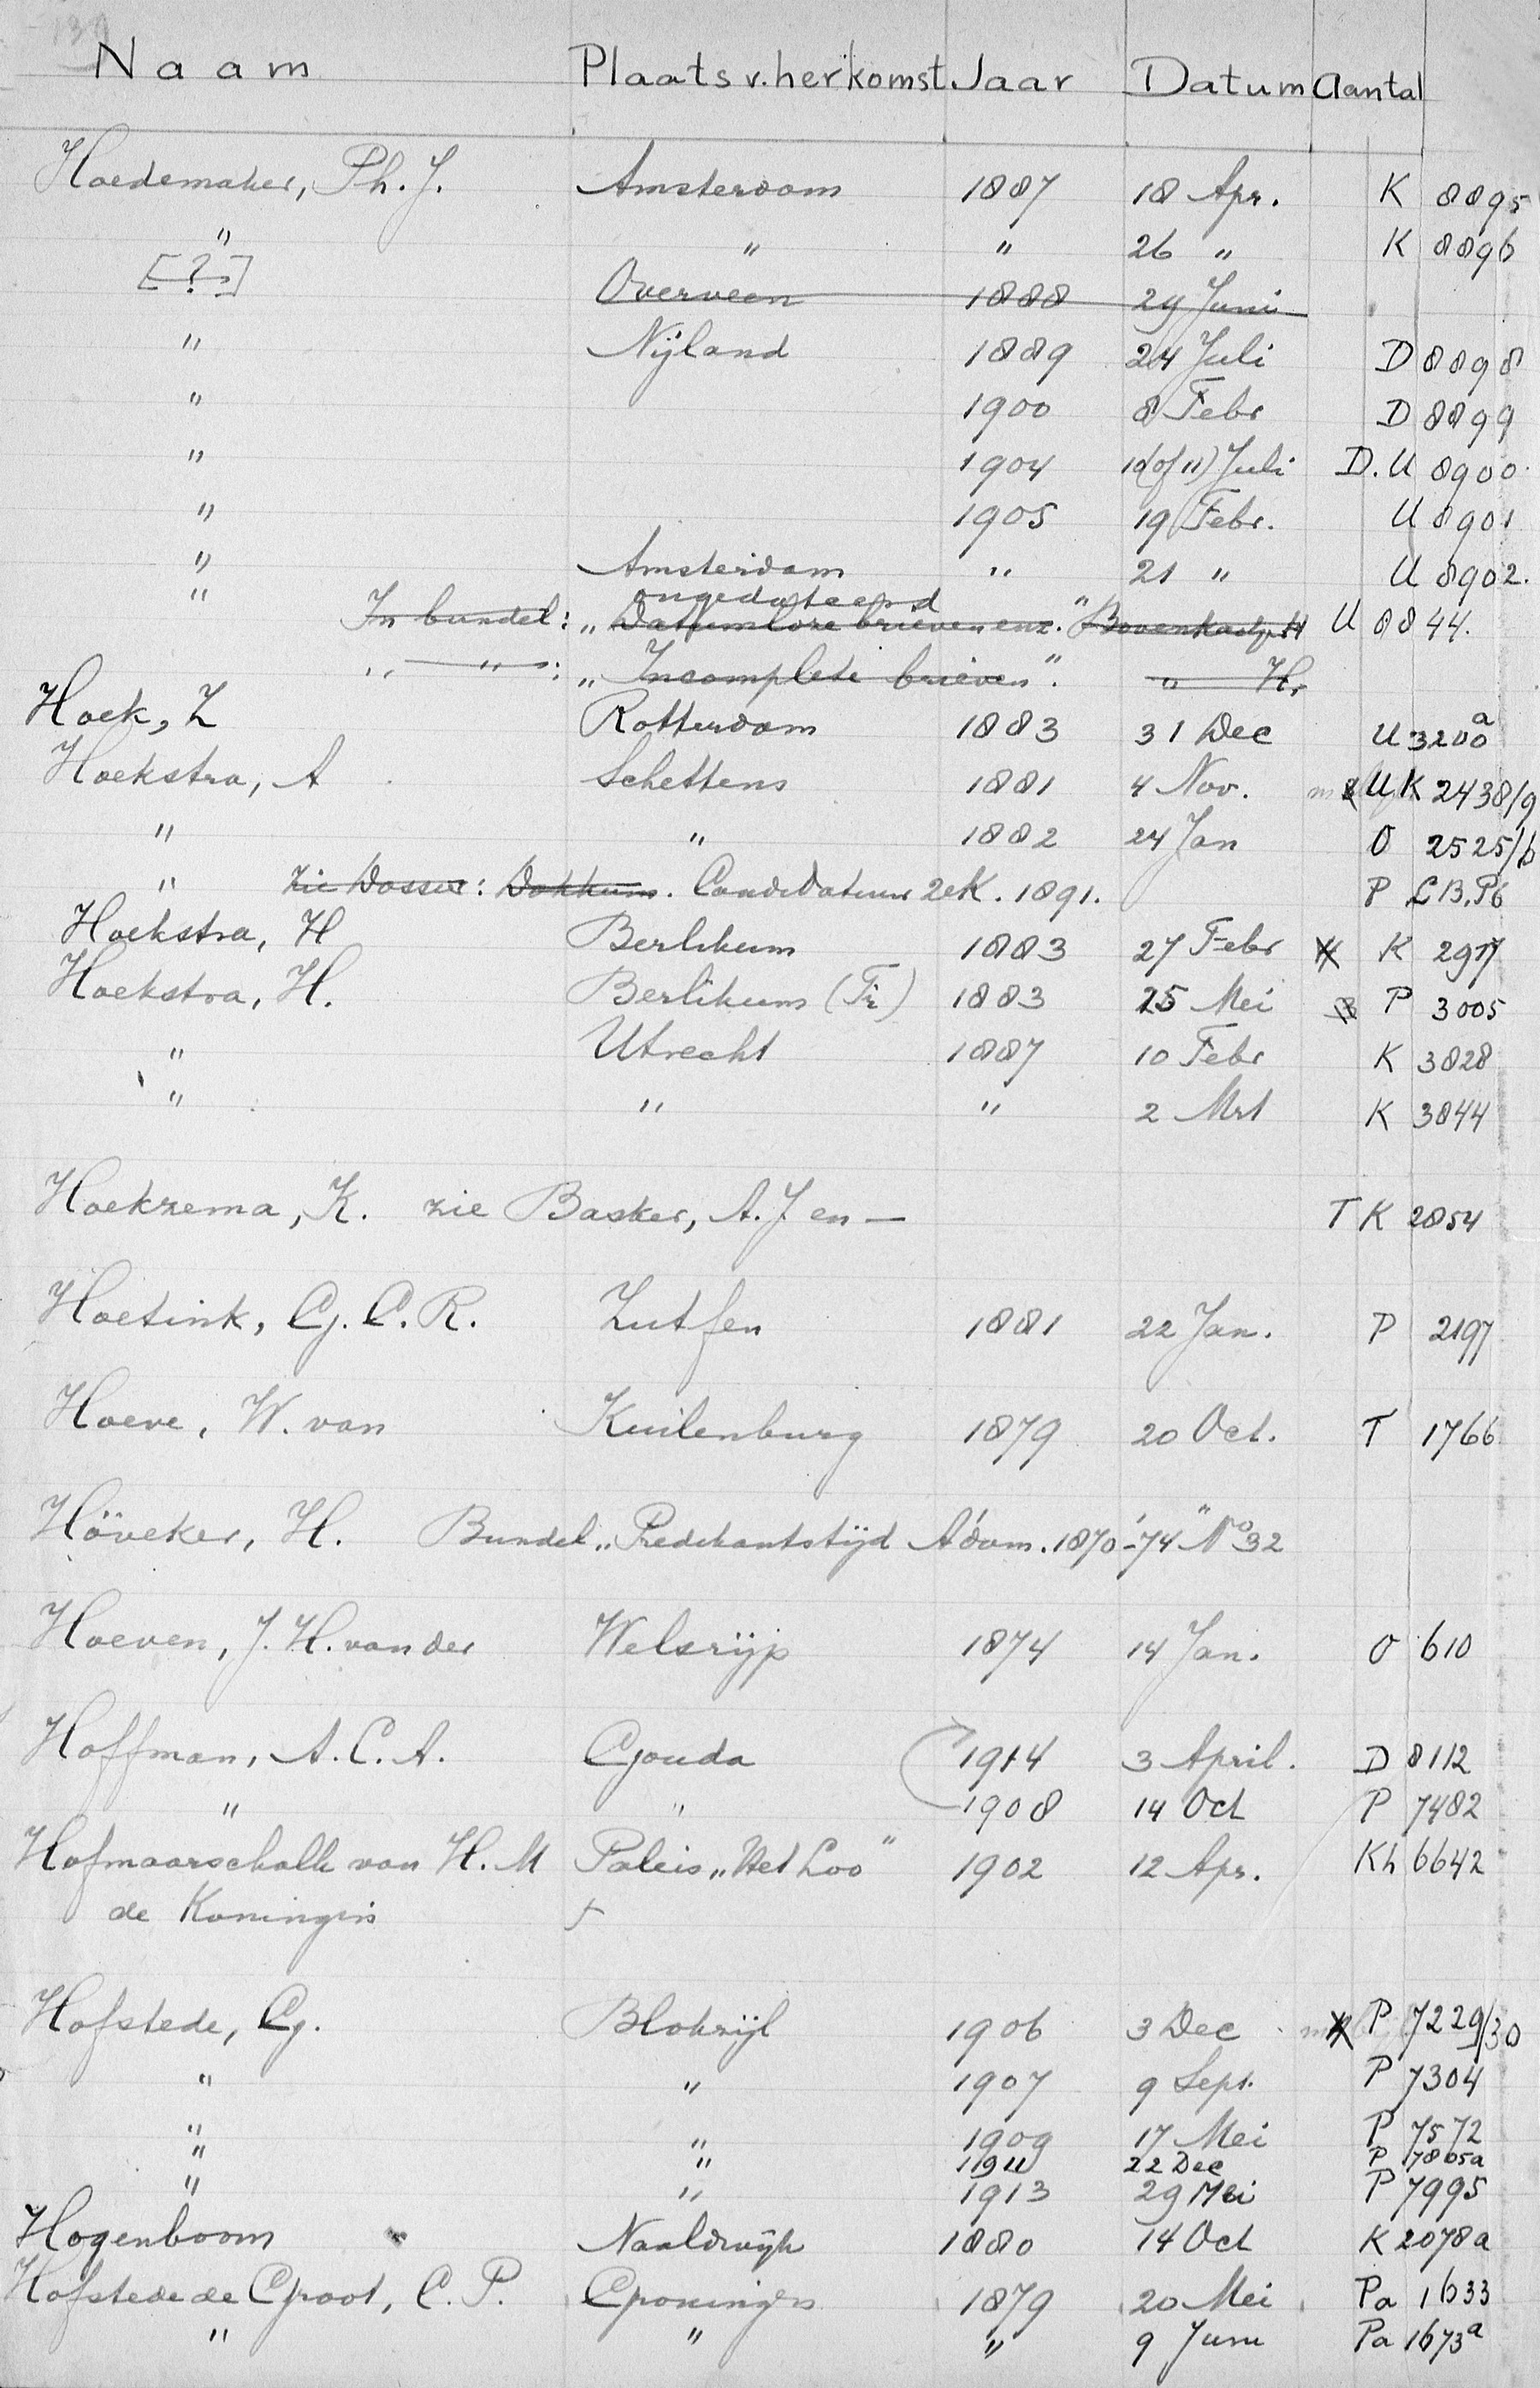 Naam Plaats v. herkomst Jaar Datum Aantal
Hoedemaker, Ph. J. Amsterdam 1887 18 Apr. K 8895
" " " 26 " K 8896
[?] Overveen 1888 29 Juni
" Nijland 1889 24 Juli D 8898
" 1900 8 Febr D 8899
" 1904 10(of 11) Juli D. U 8900
" 1905 19 Febr. U 8901
" Amsterdam " 21 " U 8902.
ongedateerd
" In bundel: „Datumloze brieven enz." Bovenkastje H U 8844.
„ — " —: „Incomplete brieven". " H.
Hoek, Z Rotterdam 1883 31 Dec U 3200a
Hoekstra, A Schettens 1881 4 Nov. U K 2438/9
" " 1882 24 Jan O 2525/b
" zie Dossier: Dokkum. Candidatuur 2e K. 1891. P L.B.P6
Hoekstra, H Berlikum 1883 27 Febr K 2917
Hoekstra, H. Berlikum (Fr) 1883 25 Mei P 3005
" Utrecht 1887 10 Febr K 3828
" " " 2 Mrt K 3844
Hoekzema, K. zie Basker, A. J. en — T K 2854
Hoetink, G. C. R. Zutfen 1881 22 Jan. P 2197
Hoeve, W. van Kuilenburg 1879 20 Oct. T 1766
Höveker, H. Bundel „Predikantstijd A'dam. 1870-'74" No 32
Hoeven, J. H. van der Welsrijp 1874 14 Jan. O 610
Hoffman, A. C. A. Gouda 1914 3 April. D 8112
" " 1908 14 Oct P 7482
Hofmaarschalk van H. M Paleis „Het Loo" 1902 12 Apr. Kh 6642
de Koningin
Hofstede, G. Blokzijl 1906 3 Dec P 7229/30
" " 1907 9 Sept. P 7304
" " 1909 17 Mei P 7572
" " 1911 22 Dec P 7805a
" " 1913 29 Mei P 7995
Hogenboom Naaldwijk 1880 14 Oct K 2078a
Hofstede de Groot, C. P. Groningen 1879 20 Mei Pa 1633
" " " 9 Juni Pa 1673a